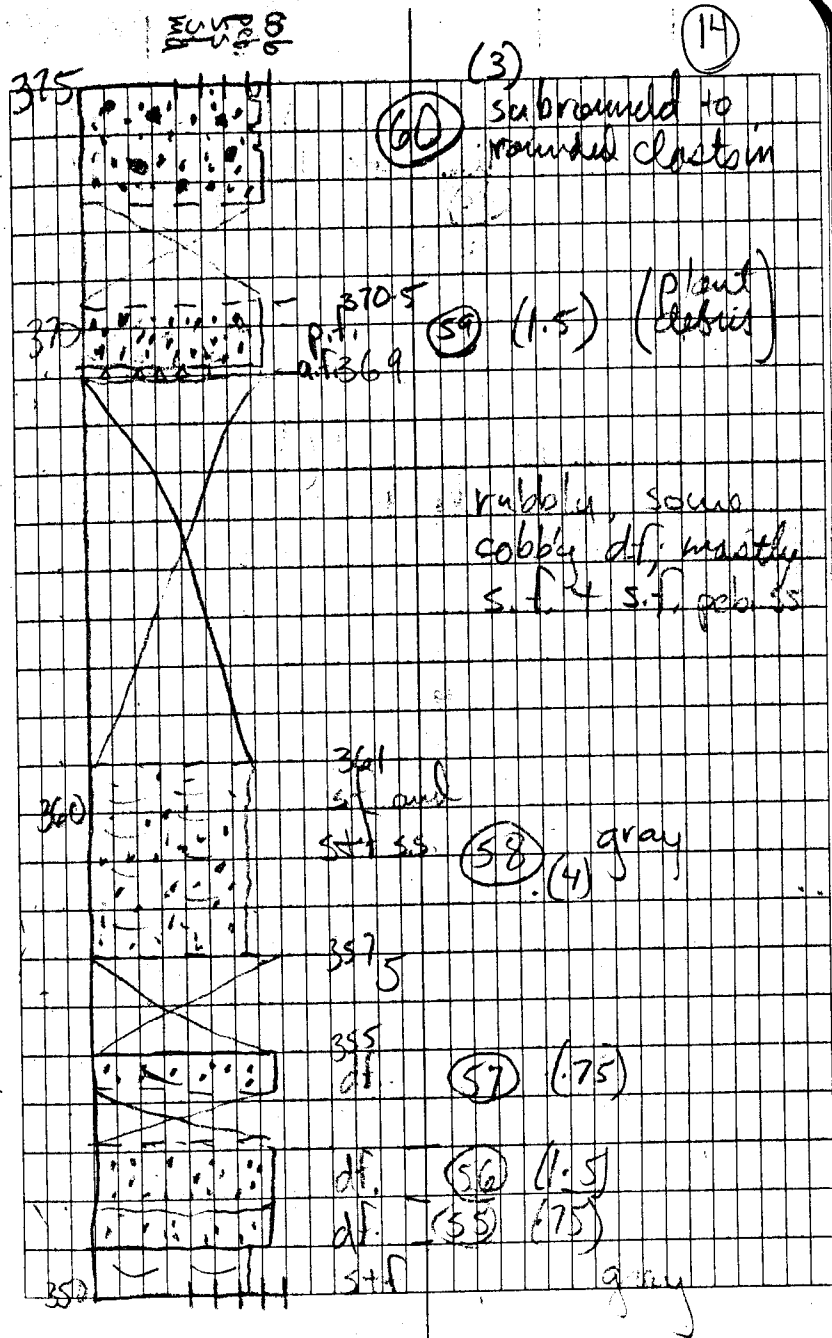 14
cob
peb.
ss
md
375
(3)
60
subrounded to
rounded clasts in
370.5
370
p.f.
59 (1.5) (plant
debris)
a.f. 369
rubbly, some
cobbly df, mostly
s.f. + s.f. peb. ss
361
sf and
360
ss.
58
(4)
gray
357.5
355
df
57 (.75)
df. 56 (1.5)
df. 55 (.75)
stf
gray
350